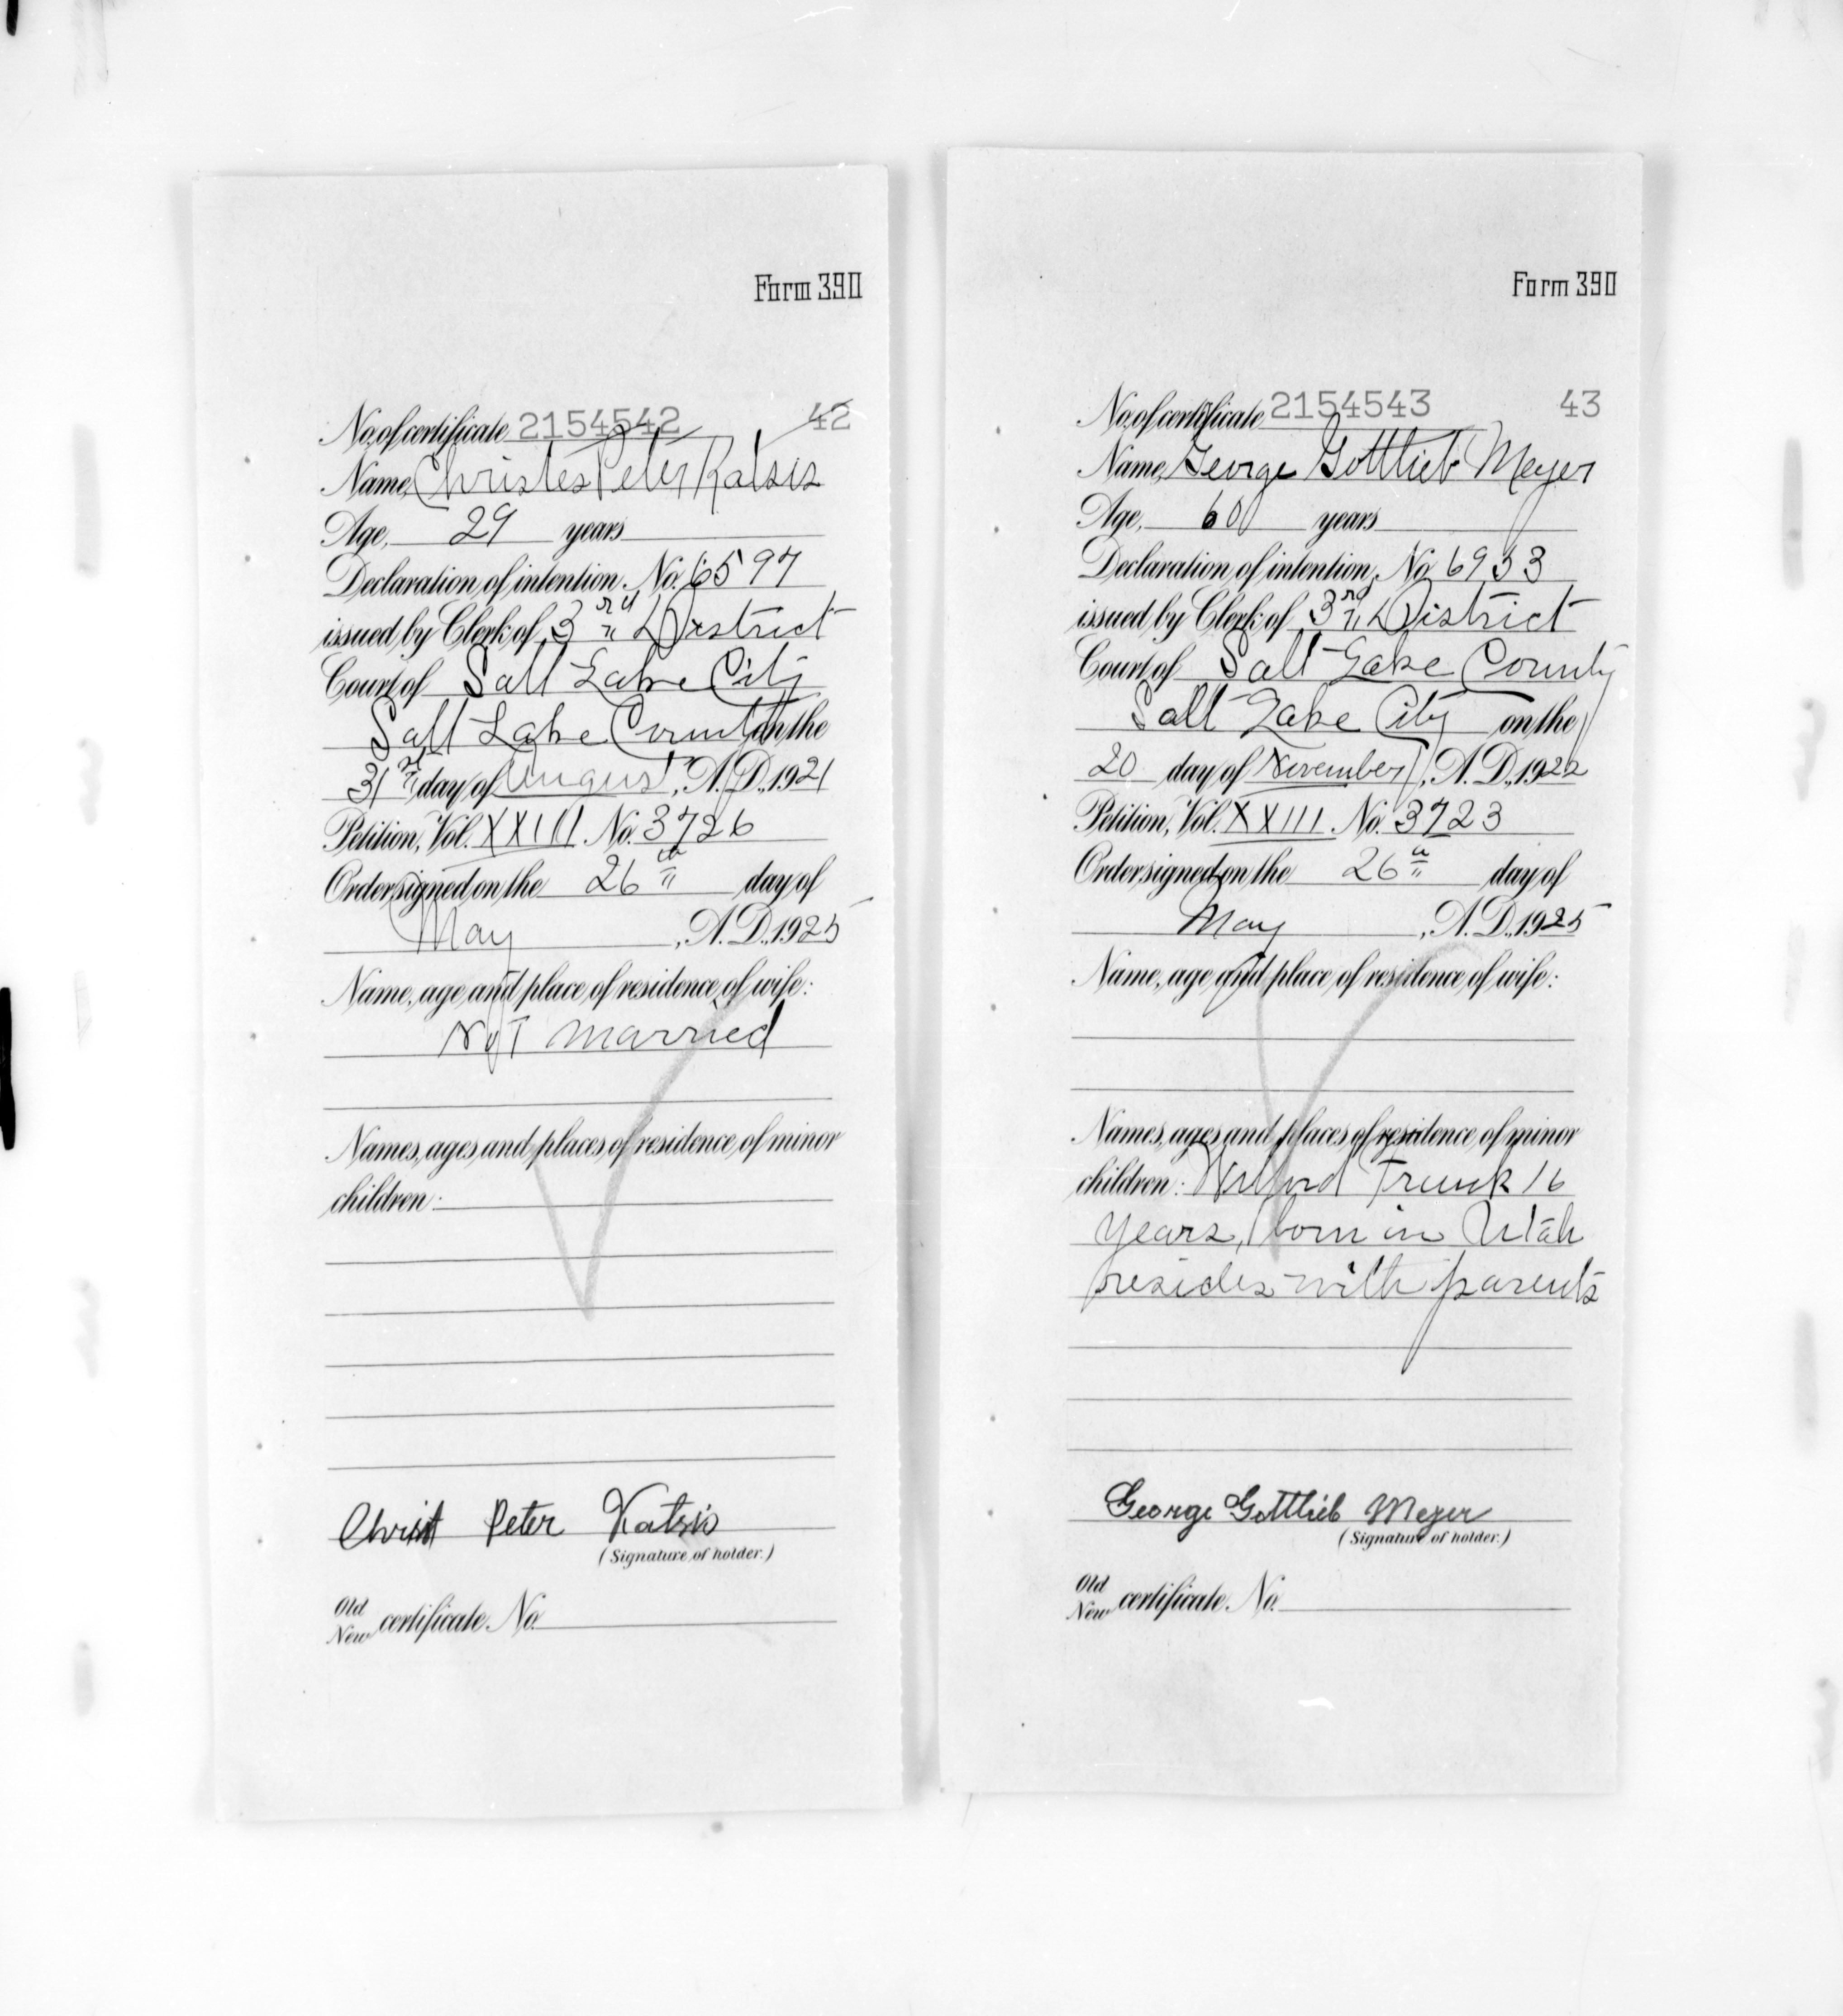 Form 390
No. of certificate 2154542 42
Name, Christos Peter Katsis
Age, 29 years
Declaration of intention, No. 6597
issued by Clerk of 3rd District
Court of Salt Lake City
Salt Lake County on the
31st day of August, A.D., 1921
Petition, Vol. XXIII No. 3726
Order signed on the 26th day of
May, A.D., 1925
Name, age and place of residence of wife:
Not married
Names, ages and places of residence of minor
children:
Christ Peter Katsis
(Signature of holder.)
Old
New certificate No.
Form 390
No. of certificate 2154543 43
Name, George Gottlieb Meyer
Age, 60 years
Declaration of intention, No. 6953
issued by Clerk of 3rd District
Court of Salt Lake County
Salt Lake City on the
20 day of November, A.D., 1922
Petition, Vol. XXIII No. 3723
Order signed on the 26 day of
May, A.D., 1925
Name, age and place of residence of wife:
Names, ages and places of residence of minor
children: 16
years, born in Utah
resides with parents
George Gottlieb Meyer
(Signature of holder.)
Old
New certificate No.